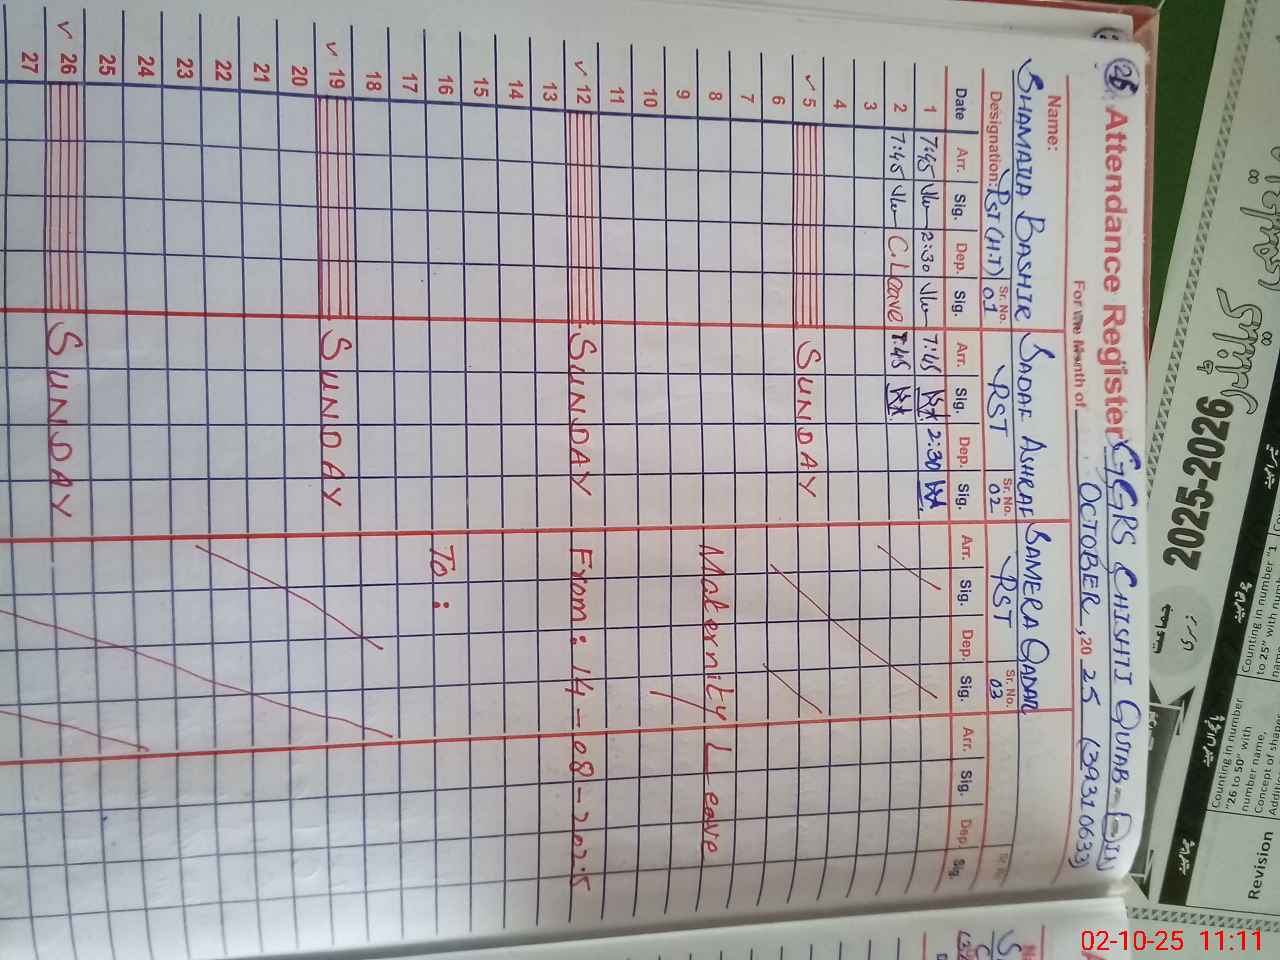 26 Attendance Register GGRS CHISHTI QUTAB-DIN
For the Month of OCTOBER, 2025 (39310633)
Name: SHAMAILA BASHIR SADAF ASHRAF SAMERA QADAR
Designation: PST (H.T) Sr. No. 01 PST Sr. No. 02 PST Sr. No. 03
Date Arr. Sig. Dep. Sig. Arr. Sig. Dep. Sig. Arr. Sig. Dep. Sig. Arr. Sig. Dep. Sig.
1 7:45 2:30 7:45 2:30
2 7:45 C.Leave 7:45
3
4
5 SUNDAY
6
7
8 Maternity Leave
9
10
11
12 SUNDAY From: 14-08-2025
13
14
15
16 To:
17
18
19 SUNDAY
20
21
22
23
24
25
26 SUNDAY
27
2025-2026
Counting in number "1 to 25" with
Counting in number "26 to 50" with number name, Concept of
Revision
02-10-25 11:11